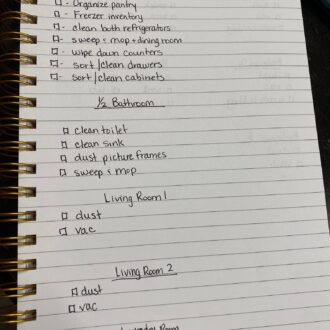 - Organize pantry
- Freezer inventory
- clean both refrigerators
- sweep & mop + dining room
- wipe down counters
- sort/clean drawers
- sort/clean cabinets
1/2 Bathroom
clean toilet
clean sink
dust picture frames
sweep & mop
Living Room 1
dust
vac
Living Room 2
dust
vac
Room